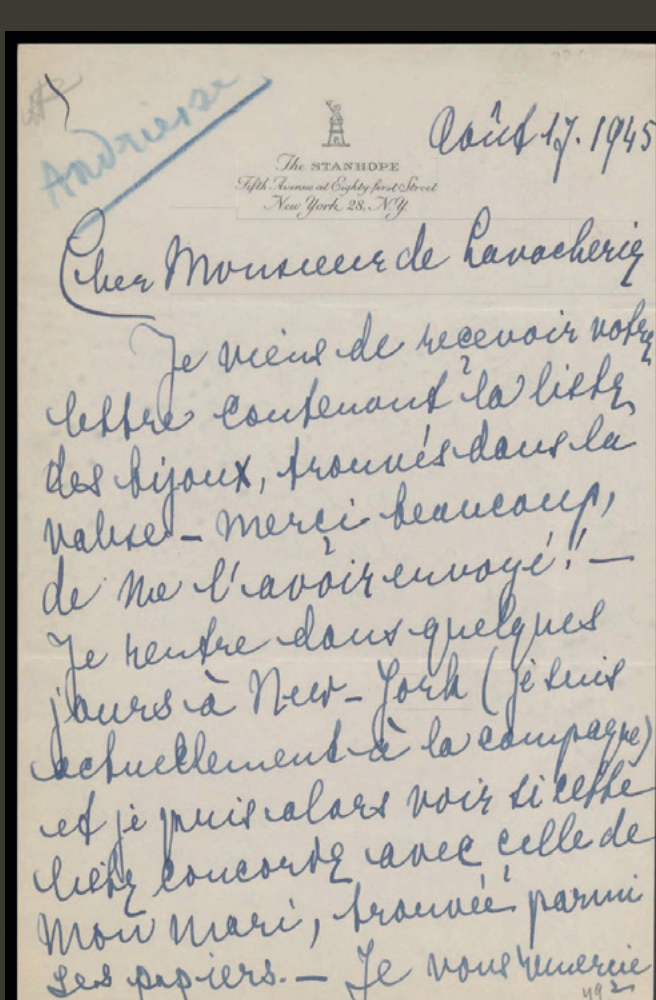 Andriesse
Août 17. 1945
The STANHOPE
Fifth Avenue at Eighty-first Street
New York 28. N.Y.
Cher Monsieur de Lavacherie
Je viens de recevoir votre
lettre contenant la liste
des bijoux, trouvés dans la
valise - merci beaucoup,
de me l'avoir envoyé! —
Je rentre dans quelques
jours à New-York (je suis
actuellement à la campagne)
et je puis alors voir si cette
liste concorde avec celle de
mon mari, trouvée parmi
ses papiers. — Je vous remercie